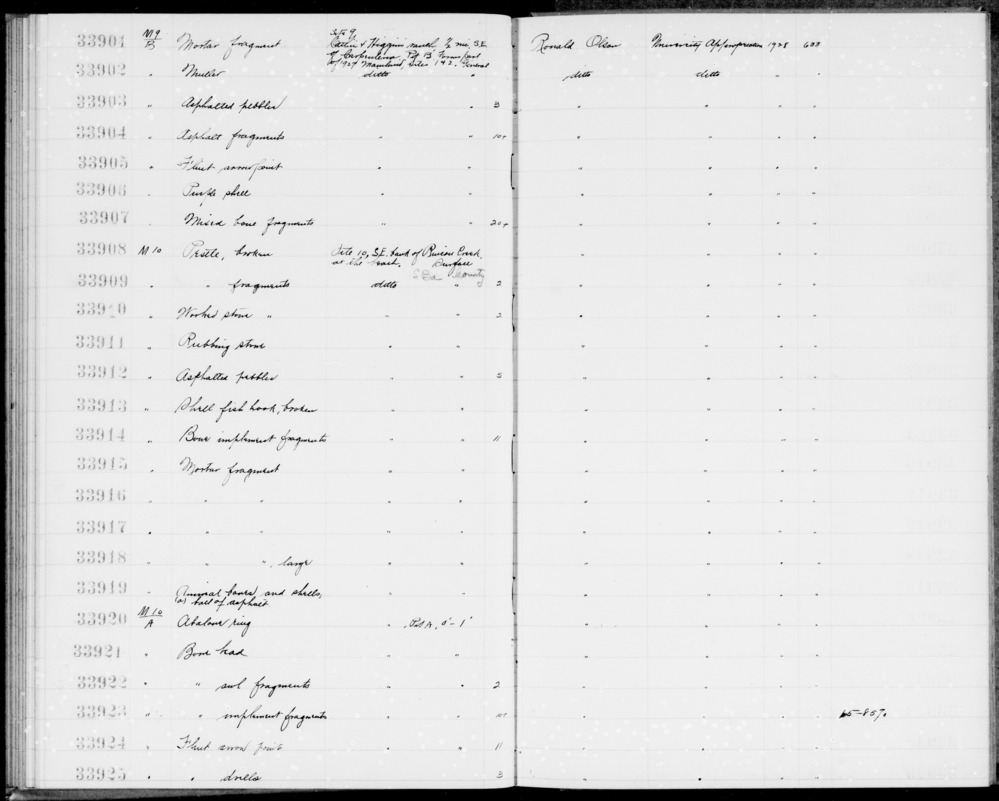 33901 M9/B Mortar fragment Site 9, Ronald Olson University Appropriation 1928 633
Higgins ranch, ½ mi. S.E.
of Carpinteria, Pit B
Mainland, Sites 1 & 2. General
33902 " Muller ditto " ditto ditto " "
33903 " Asphalted pebbles " " 3 " " " "
33904 " Asphalt fragments " " 10+ " " " "
33905 " Flint arrowpoint " " " " " "
33906 " Purple shell " " " " " "
33907 " Mixed bone fragments " " 20+ " " " "
33908 M10 Pestle, broken Site 10, S.E. bank of Rincon Creek, " " " "
at the beach. Surface
S Ba County
33909 " " fragments ditto " 2 " " " "
33910 " Worked stone " " " 2 " " " "
33911 " Rubbing stone " " " " " "
33912 " Asphalted pebbles " " 5 " " " "
33913 " Shell fish hook, broken " " " " " "
33914 " Bone implement fragments " " 11 " " " "
33915 " Mortar fragment " " " " " "
33916 " " " " " " " " "
33917 " " " " " " " " "
33918 " " ", large " " " " " "
33919 " Animal bones, and shells, " " " " " "
(a) ball of asphalt
33920 M10/A Abalone ring " Pit A, 0'-1' " " " "
33921 " Bone bead " " " " " "
33922 " " awl fragments " " 2 " " " "
33923 " " implement fragments " " 10 " " " " 65-8570
33924 " Flint arrow points " " 11 " " " "
33925 " " drills " " 3 " " " "